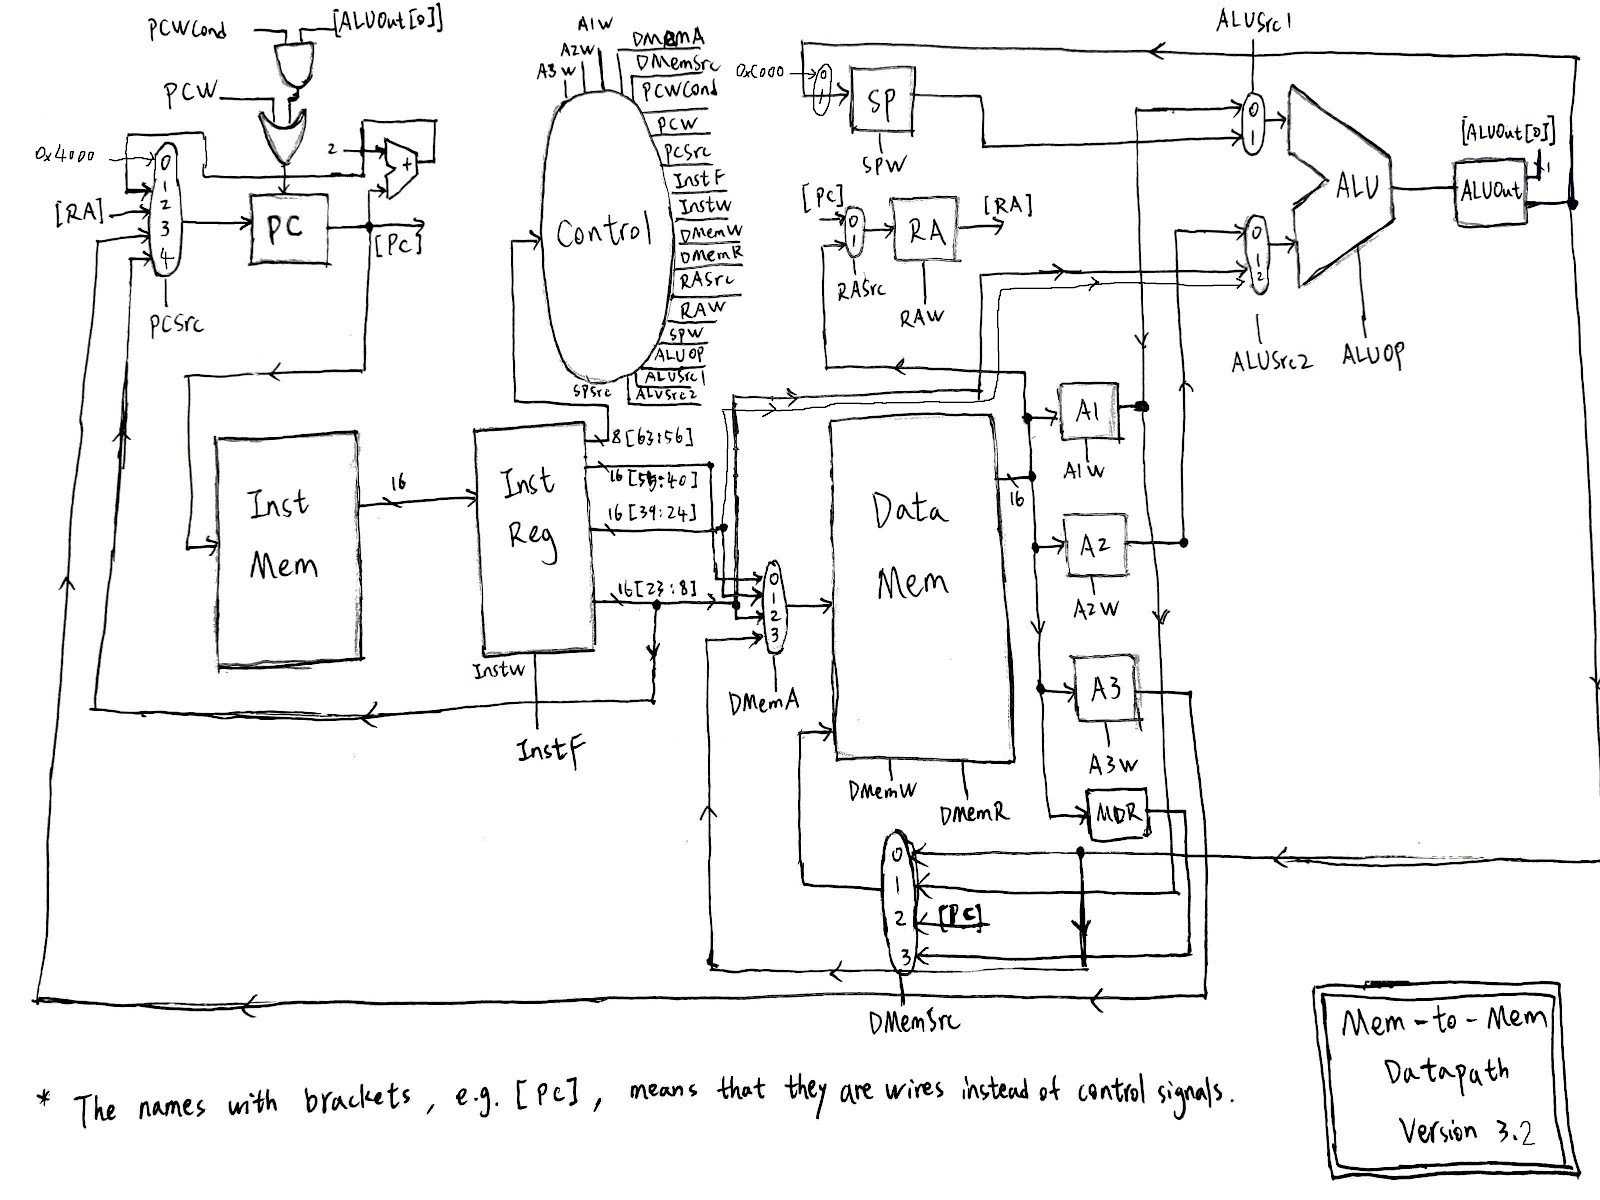 PCWCond
[ALUOut[0]]
PCW
0x4000
0
1
2
3
4
[RA]
PC
[PC]
2
+
PCSrc
A1W
A2W
A3W
DMemA
DMemSrc
PCWCond
PCW
PCSrc
InstF
InstW
DMemW
DMemR
RASrc
RAW
SPW
ALUOP
ALUSrc1
ALUSrc2
SPSrc
Control
0xC000
0
1
SP
SPW
[PC]
0
1
RA
[RA]
RASrc
RAW
ALUSrc1
0
1
0
1
2
ALUSrc2
ALU
ALUOP
[ALUOut[0]]
1
ALUOut
Inst
Mem
16
Inst
Reg
InstW
InstF
8[63:56]
16[55:40]
16[39:24]
16[23:8]
0
1
2
3
DMemA
Data
Mem
DMemW
DMemR
16
A1
A1W
A2
A2W
A3
A3W
MDR
0
1
2
3
[PC]
DMemSrc
Mem-to-Mem
Datapath
Version 3.2
* The names with brackets, e.g. [PC], means that they are wires instead of control signals.